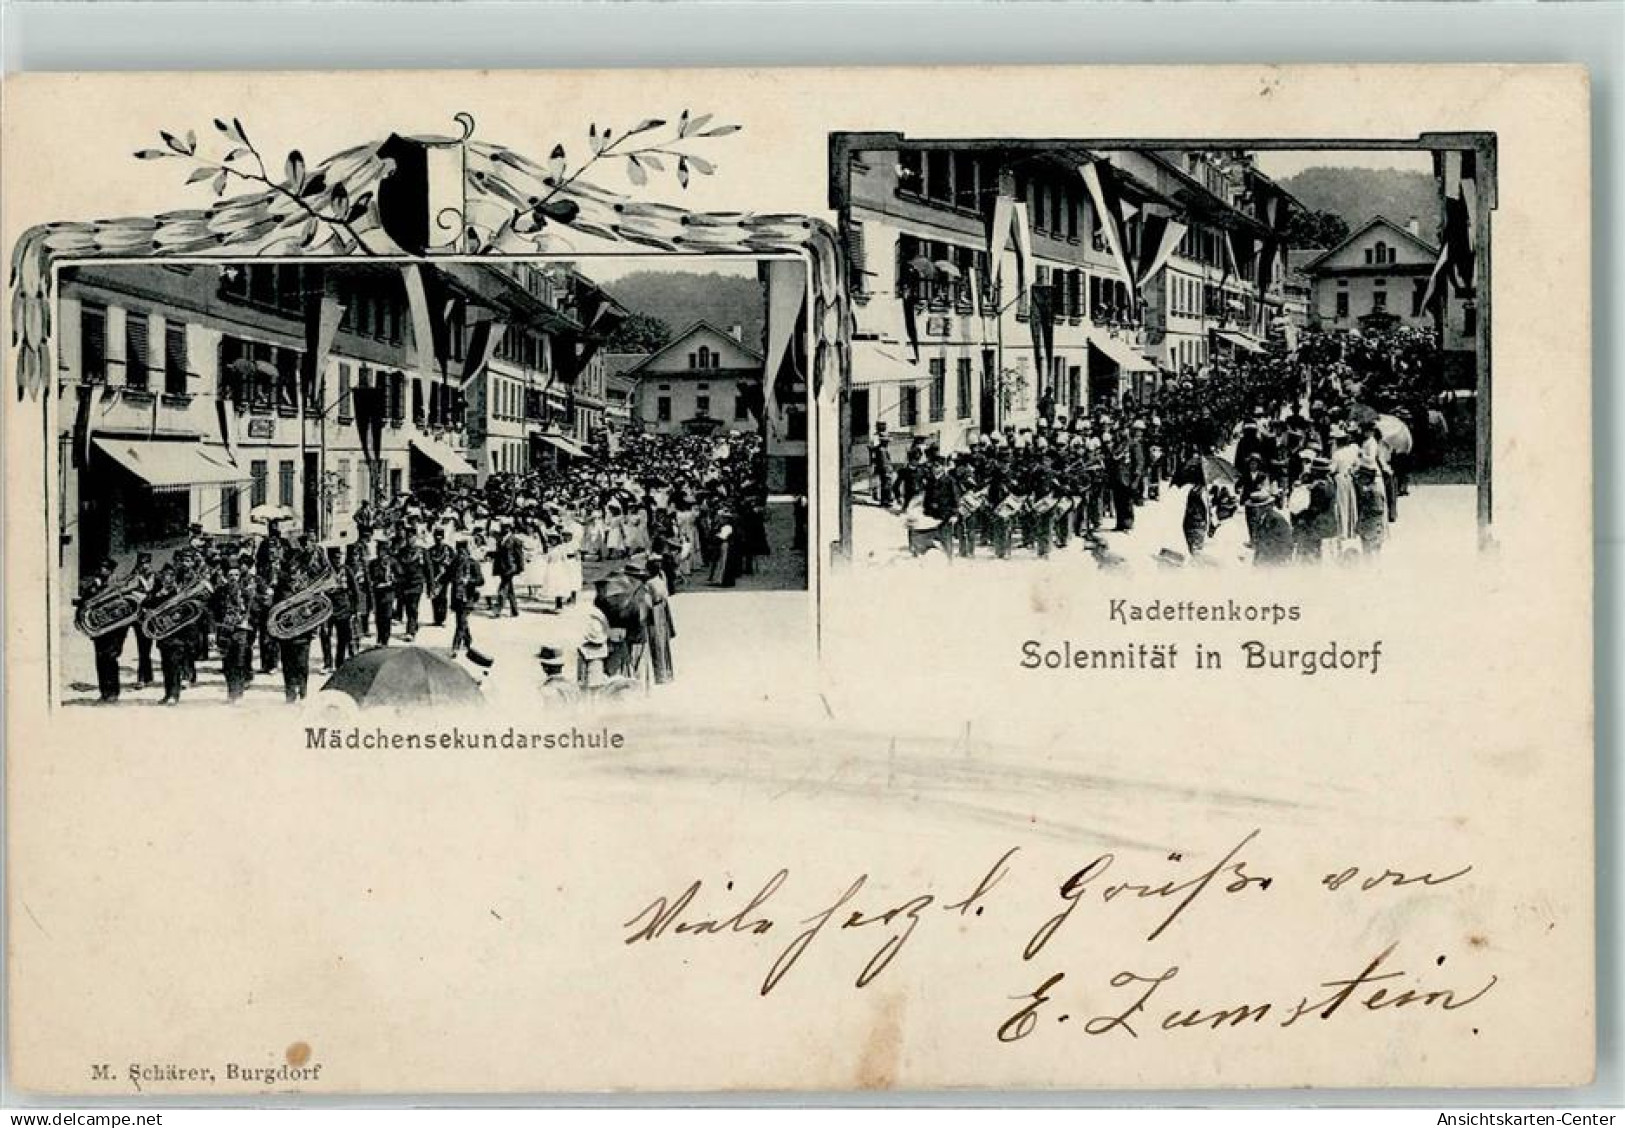 Kadettenkorps
Solennität in Burgdorf
Mädchensekundarschule
Viele herzl. Grüße von
E. Zumstein.
M. Schärer, Burgdorf
www.delcampe.net
Ansichtskarten-Center